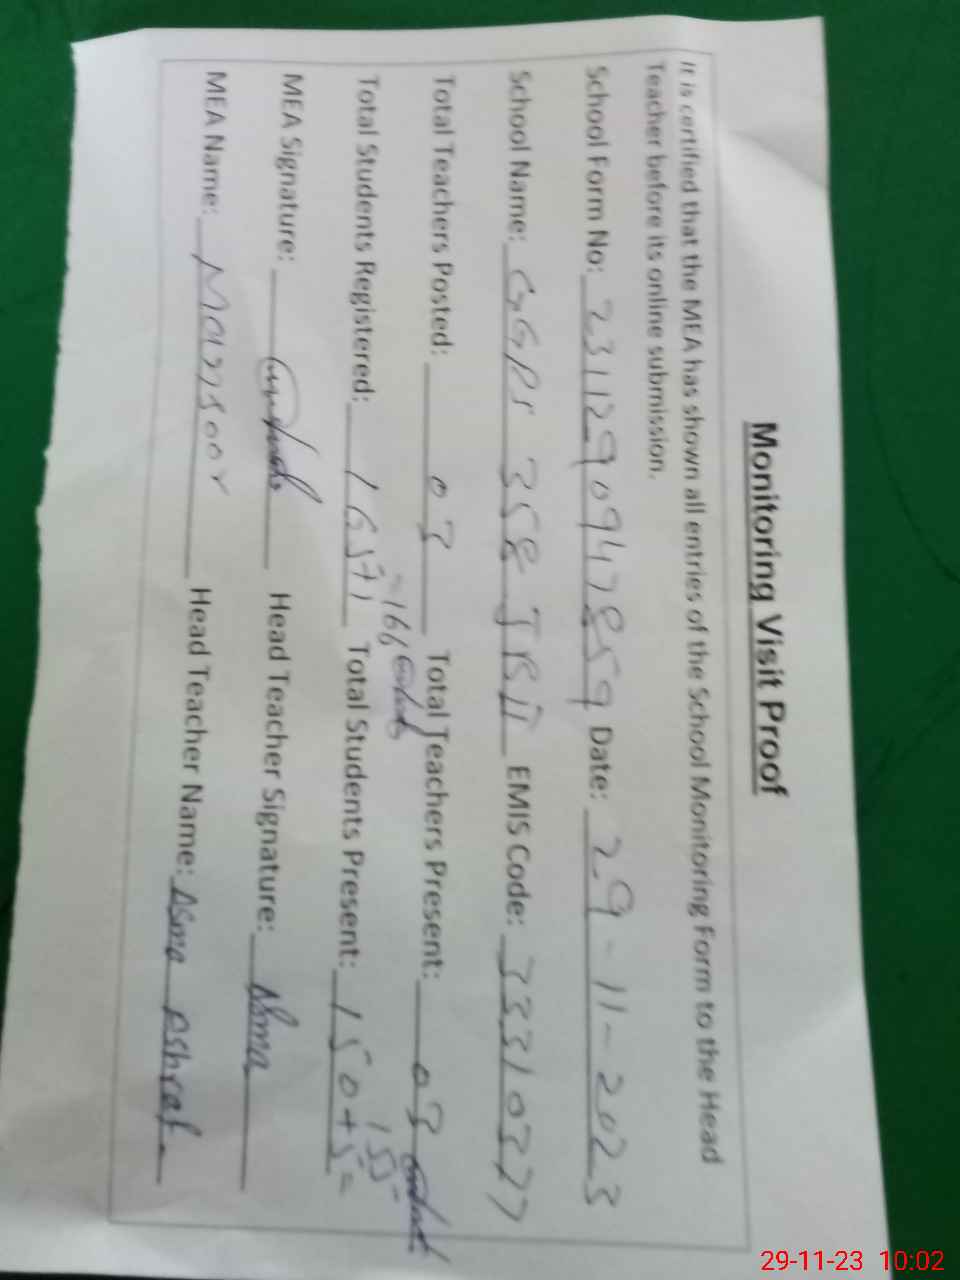 Monitoring Visit Proof
It is certified that the MEA has shown all entries of the School Monitoring Form to the Head
Teacher before its online submission.
School Form No: 231129090947859 Date: 29-11-2023
School Name: GGPS 358 JB II EMIS Code: 33310327
Total Teachers Posted: 03 Total Teachers Present: 03
=166 155=
Total Students Registered: Total Students Present: 150+5=
MEA Signature: Head Teacher Signature: Asma
MEA Name: Mansoor Head Teacher Name: Asma Ashraf
29-11-23 10:02